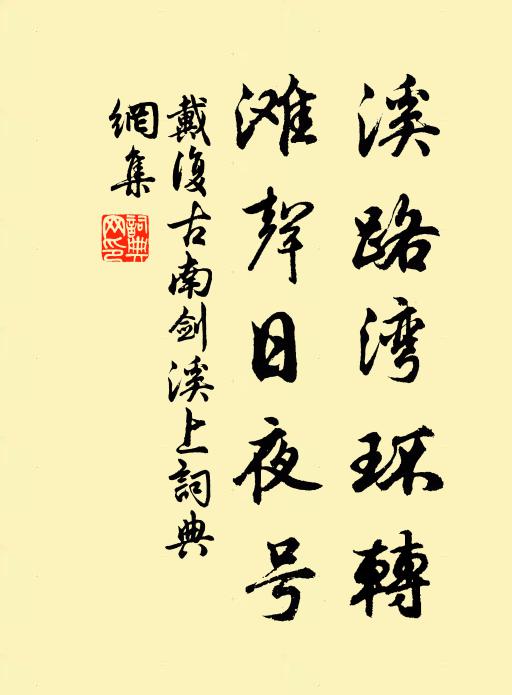 溪路湾环轉
滩聲日夜号
戴復古南剑溪上詞典
網集
詞典网印